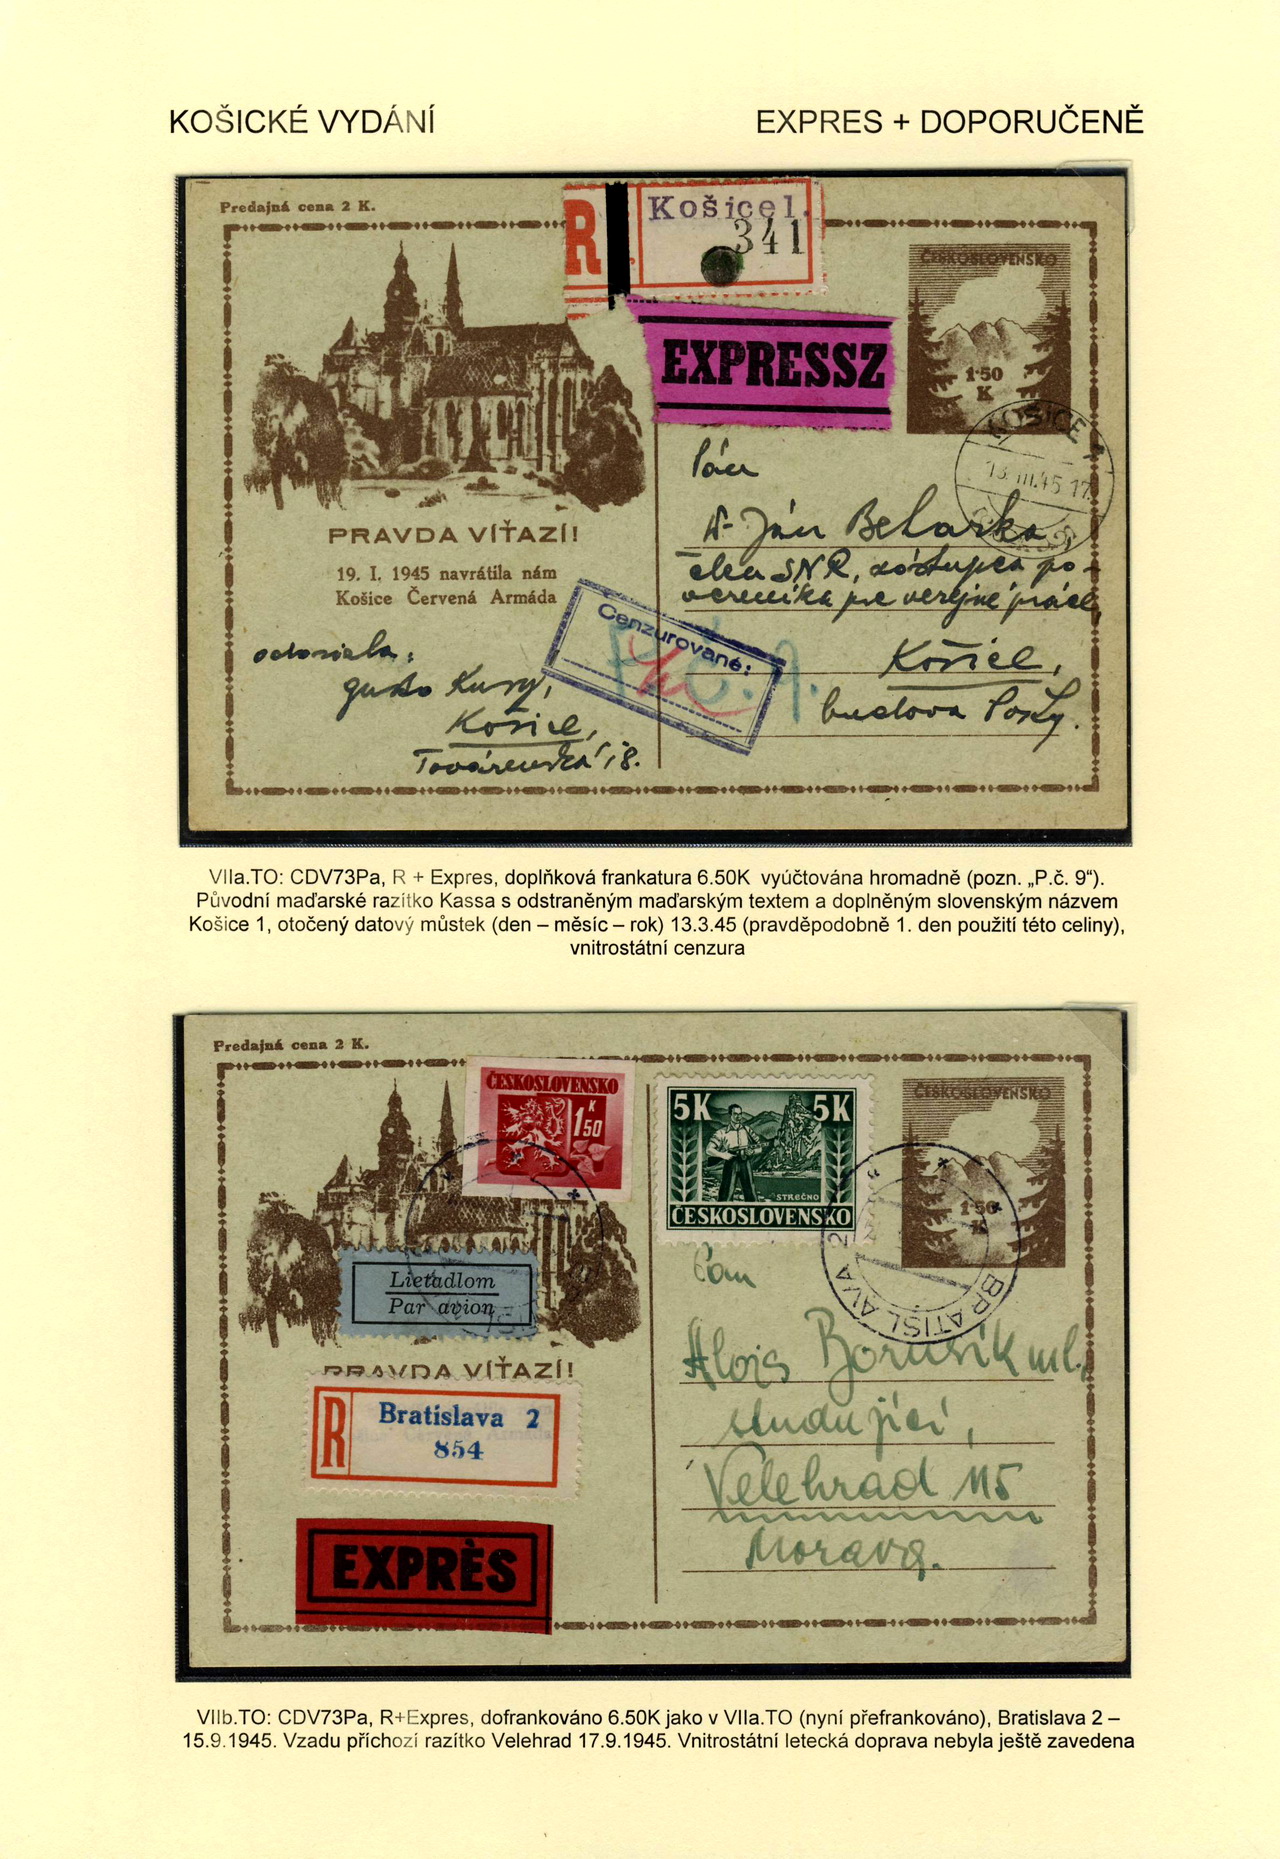 KOŠICKÉ VYDÁNÍ
EXPRES + DOPORUČENĚ
Predajná cena 2 K.
R
Košice1.
341
EXPRESSZ
ČESKOSLOVENSKO
1·50
K
KOŠICE
13.III.45 17
Pán
Ján
člen SNR, zástupca po-
verenika pre verejné práce,
Košice,
budova Pošty.
PRAVDA VÍŤAZÍ!
19. I. 1945 navrátila nám
Košice Červená Armáda
Cenzurované:
P.Č. 9.
odosiela:
Košice,
VIIa.TO: CDV73Pa, R + Expres, doplňková frankatura 6.50K vyúčtována hromadně (pozn. „P.č. 9“).
Původní maďarské razítko Kassa s odstraněným maďarským textem a doplněným slovenským názvem
Košice 1, otočený datový můstek (den – měsíc – rok) 13.3.45 (pravděpodobně 1. den použití této celiny),
vnitrostátní cenzura
Predajná cena 2 K.
ČESKOSLOVENSKO
K
1 50
5K 5K
STREČNO
ČESKOSLOVENSKO
ČESKOSLOVENSKO
1·50
K
BRATISLAVA 2
Lietadlom
Par avion
PRAVDA VÍŤAZÍ!
R
Bratislava 2
854
EXPRÈS
Pan
Alois Borusík ml.,
studující,
Velehrad 115
Morava.
VIIb.TO: CDV73Pa, R+Expres, dofrankováno 6.50K jako v VIIa.TO (nyní přefrankováno), Bratislava 2 –
15.9.1945. Vzadu příchozí razítko Velehrad 17.9.1945. Vnitrostátní letecká doprava nebyla ještě zavedena